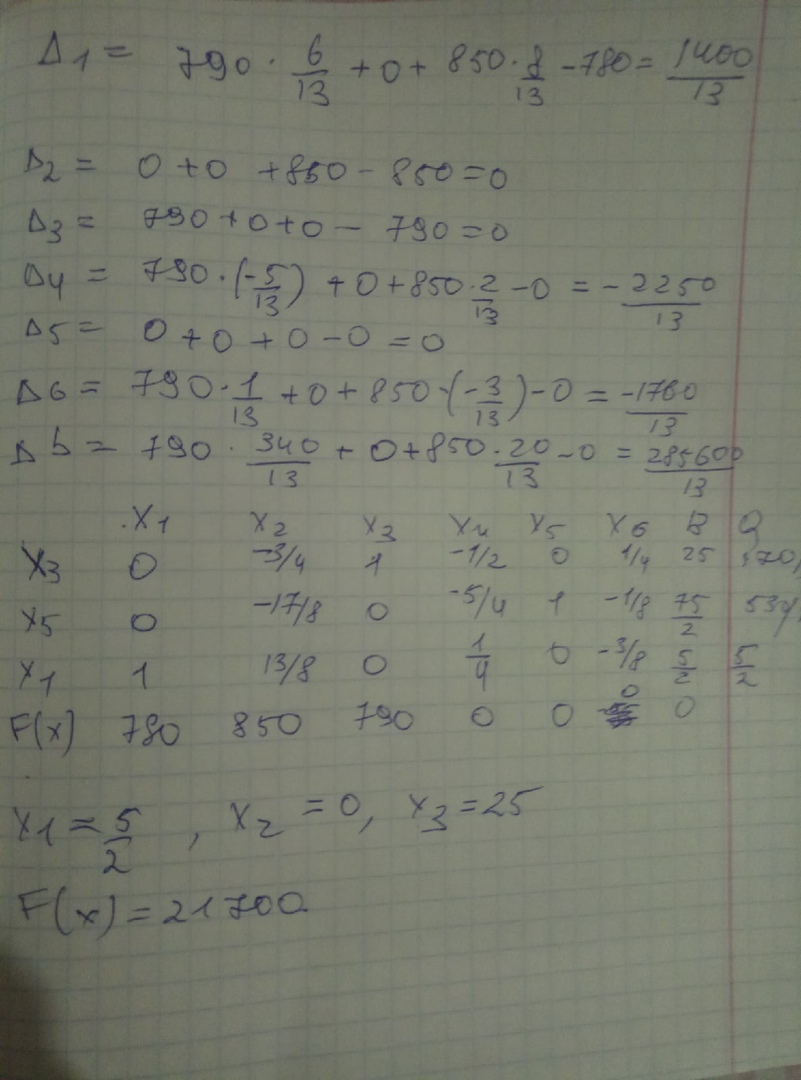 Δ1 = 790 · 6/13 + 0 + 850 · 8/13 - 780 = 1400/13
Δ2 = 0 + 0 + 850 - 850 = 0
Δ3 = 790 + 0 + 0 - 790 = 0
Δ4 = 790 · (-5/13) + 0 + 850 · 2/13 - 0 = - 2250/13
Δ5 = 0 + 0 + 0 - 0 = 0
Δ6 = 790 · 1/13 + 0 + 850 · (-3/13) - 0 = -1760/13
Δb = 790 · 340/13 + 0 + 850 · 20/13 - 0 = 285600/13
x1 x2 x3 x4 x5 x6 B Q
x3 0 -3/4 1 -1/2 0 1/4 25
x5 0 -17/8 0 -5/4 1 -1/8 75/2
x1 1 13/8 0 1/4 0 -3/8 5/2 5/2
F(x) 780 850 790 0 0 0 0
x1 = 5/2 , x2 = 0, x3 = 25
F(x) = 21700